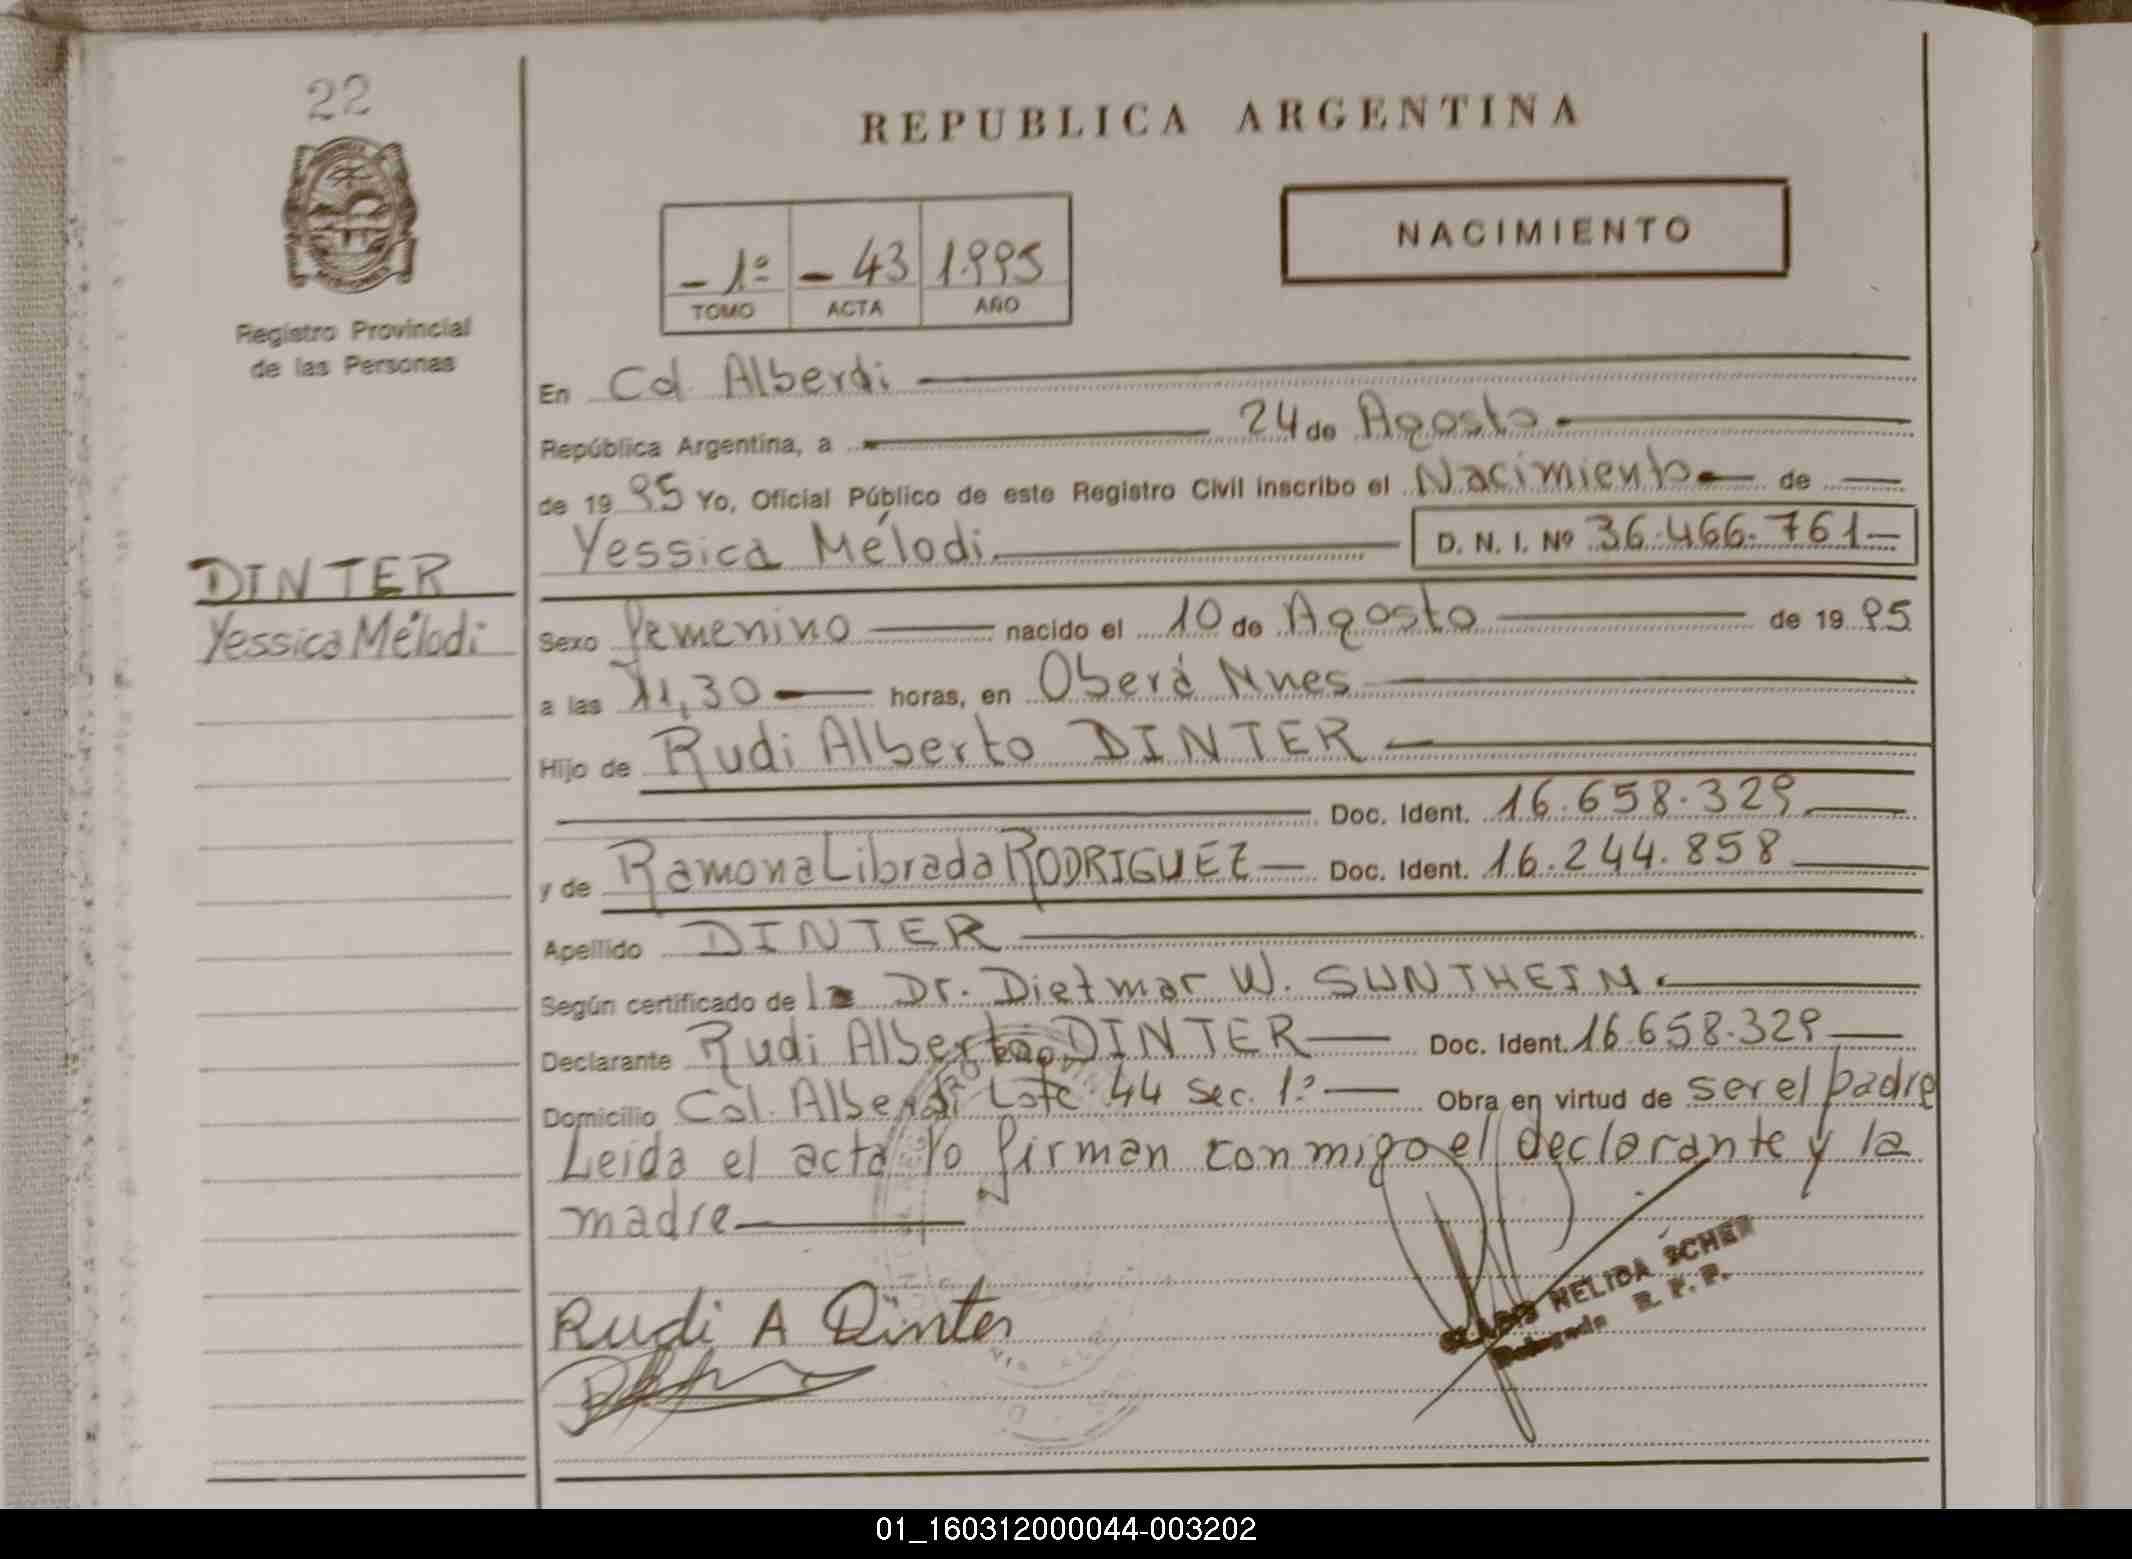 22
REPUBLICA ARGENTINA
NACIMIENTO
- 1º - 43 1.995
TOMO ACTA AÑO
Registro Provincial
de las Personas
En Col Alberdi
República Argentina, a 24 de Agosto
de 19 95 Yo, Oficial Público de este Registro Civil inscribo el Nacimiento de
Yessica Mélodi. D. N. I. Nº 36.466.761
DINTER
Yessica Mélodi
Sexo femenino nacido el 10 de Agosto de 19 95
a las 11,30 horas, en Oberá Mnes
Hijo de Rudi Alberto DINTER
Doc. Ident. 16.658.329
y de Ramona Librada RODRIGUEZ Doc. Ident. 16.244.858
Apellido DINTER
Según certificado de la Dr. Dietmar W. SUNTHEIM.
Declarante Rudi Alberto DINTER Doc. Ident. 16.658.329
Domicilio Col. Alberdi Lote 44 Sec. 1º Obra en virtud de ser el padre
Leida el acta lo firman conmigo el declarante y la
madre
Rudi A Dinter
NELIDA SCHER
Delegada R. P. P.
01_160312000044-003202